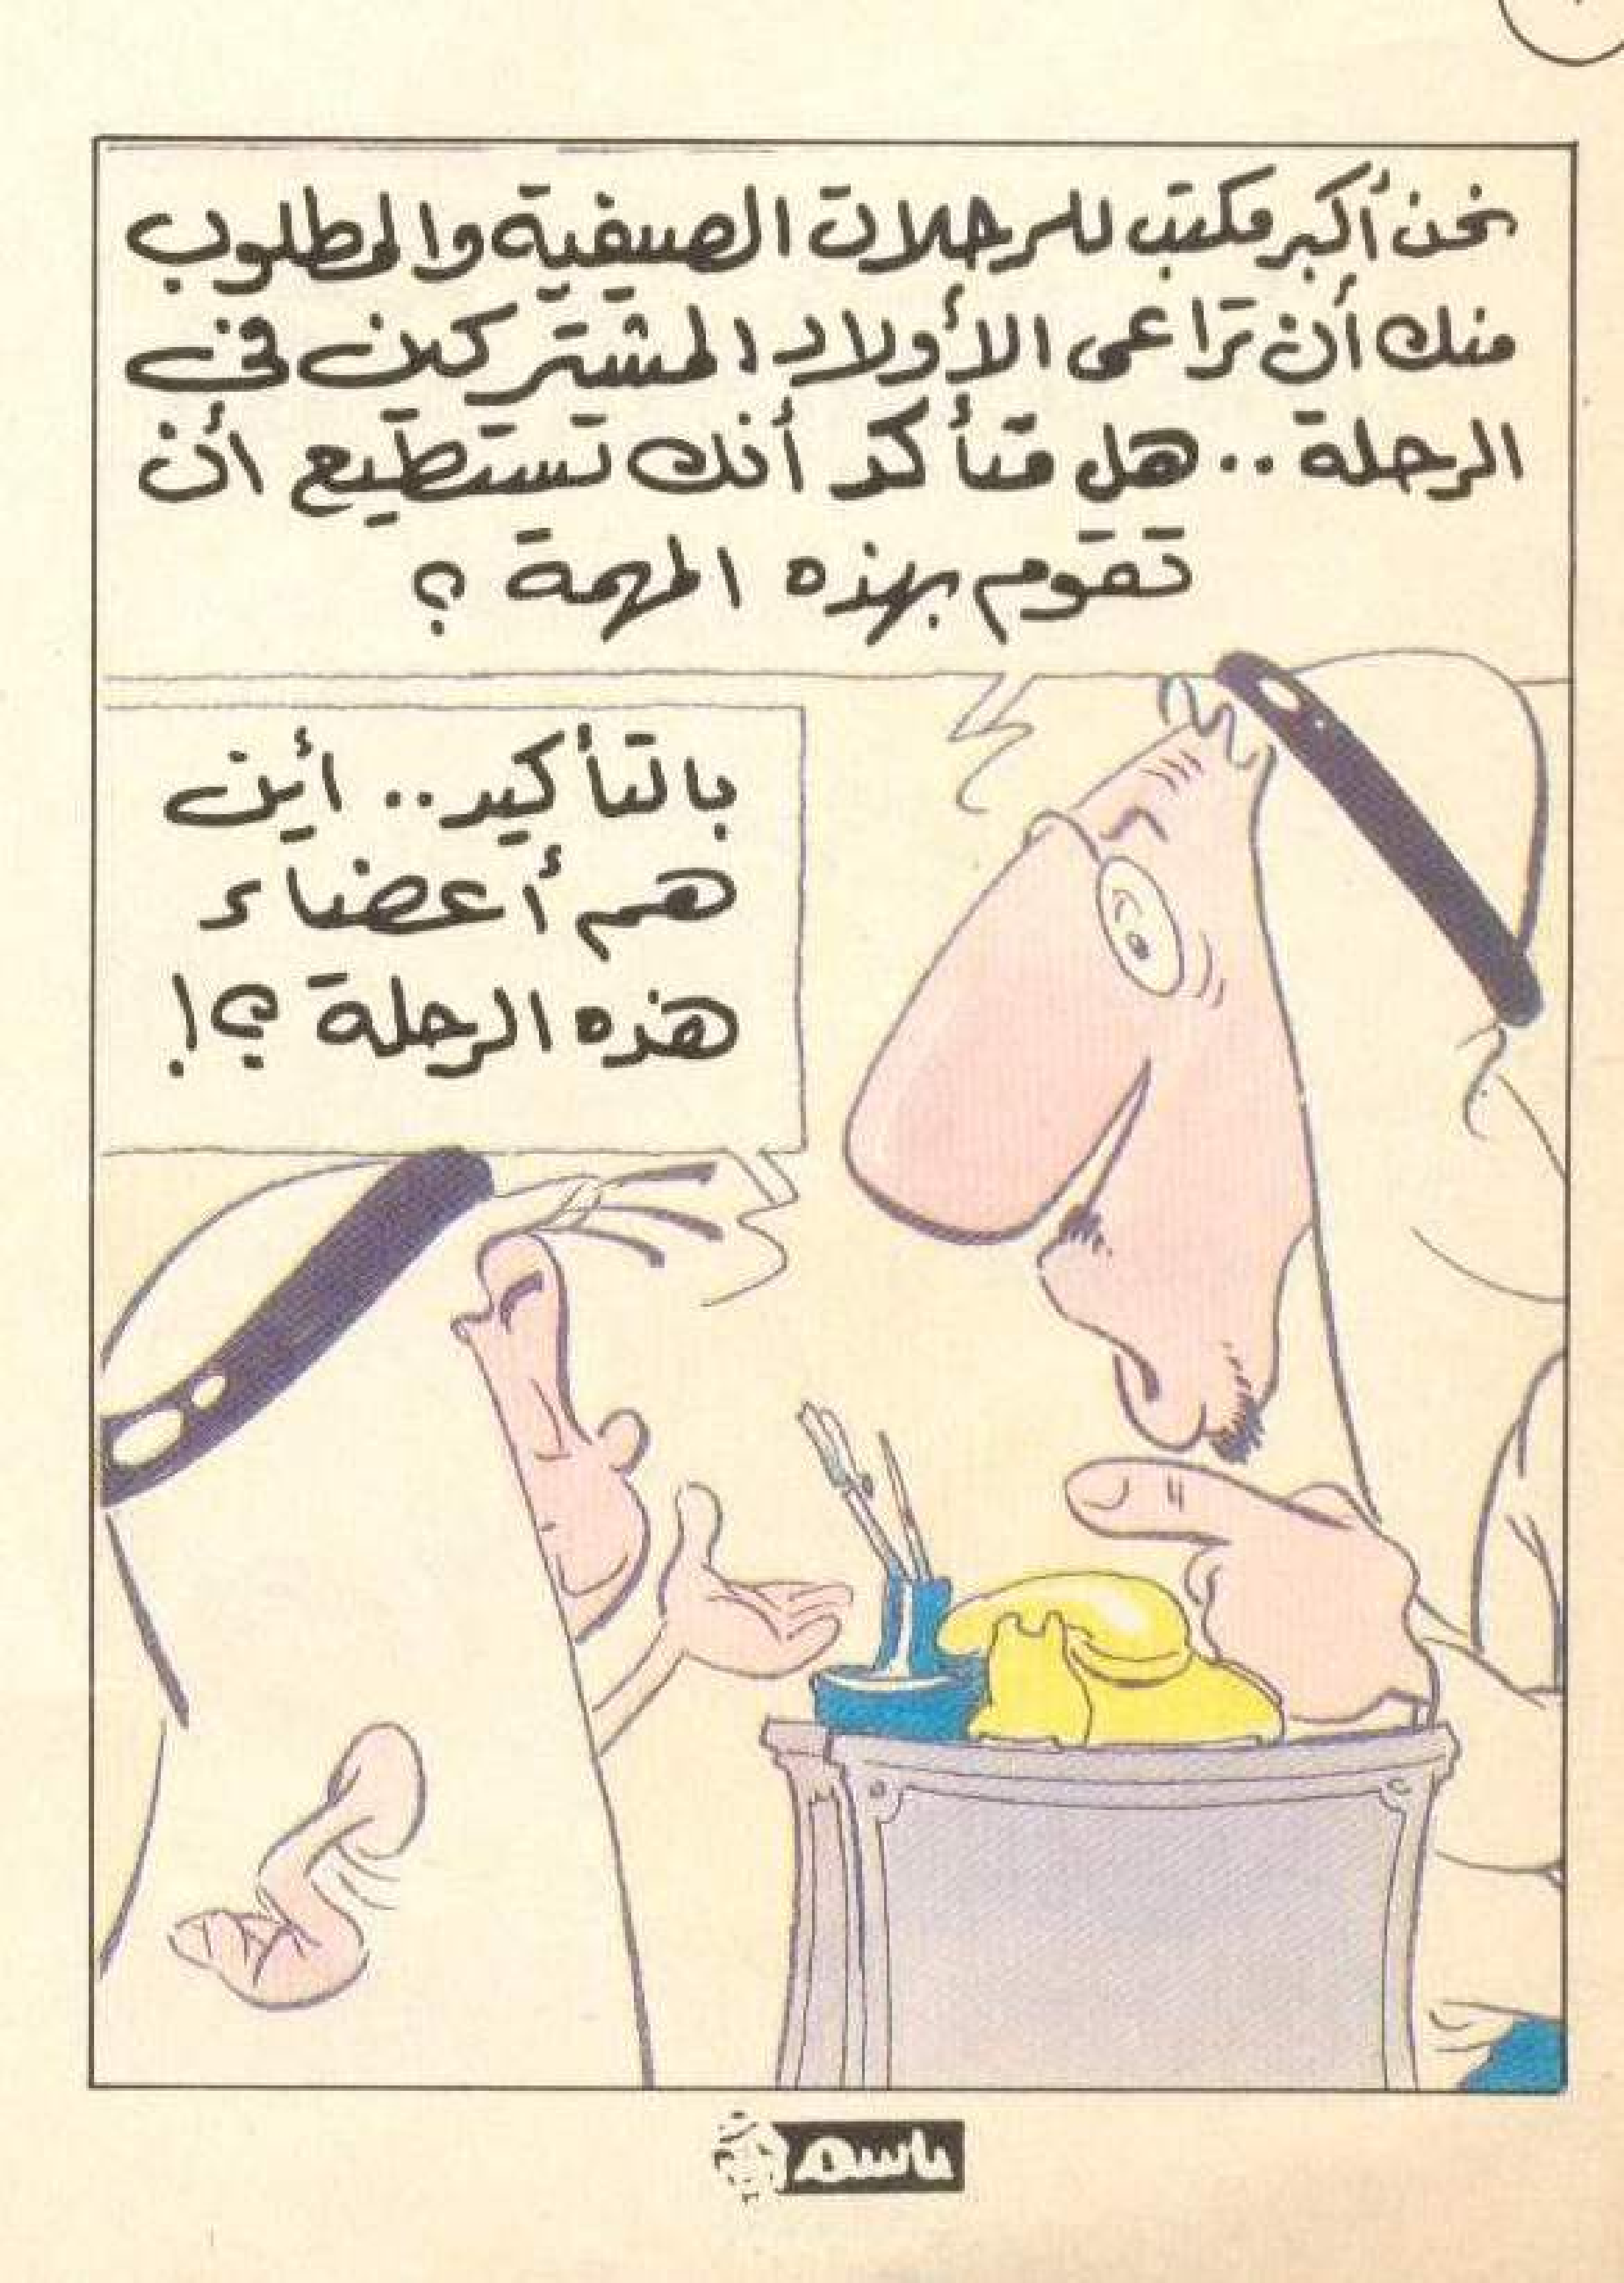 نحن أكبر مكتب للرحلات الصيفية والمطلوب
منك أن تراعى الأولاد المشتركين فى
الرحلة .. هل متأكد أنك تستطيع أن
تقوم بهذه المهمة ؟
بالتأكيد .. أين
هم أعضاء
هذه الرحلة ؟!
باسم